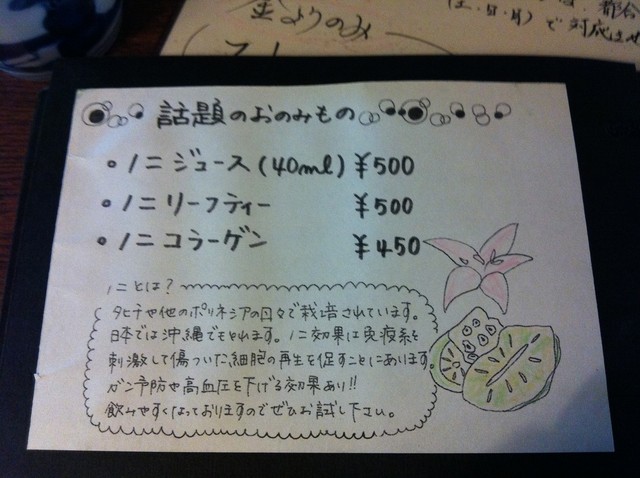 金よりのみ
(土・日・月)で対応ませ
話題のおのみもの
・ノニジュース(40ml) ¥500
・ノニリーフティー ¥500
・ノニコラーゲン ¥450
ノニとは?
タヒチや他のポリネシアの日々で栽培されています。
日本では沖縄でもとれます。ノニ効果は免疫系を
刺激して傷ついた細胞の再生を促すことにあります。
ガン予防や高血圧を下げる効果あり!!
飲みやすくなっておりますのでぜひお試し下さい。